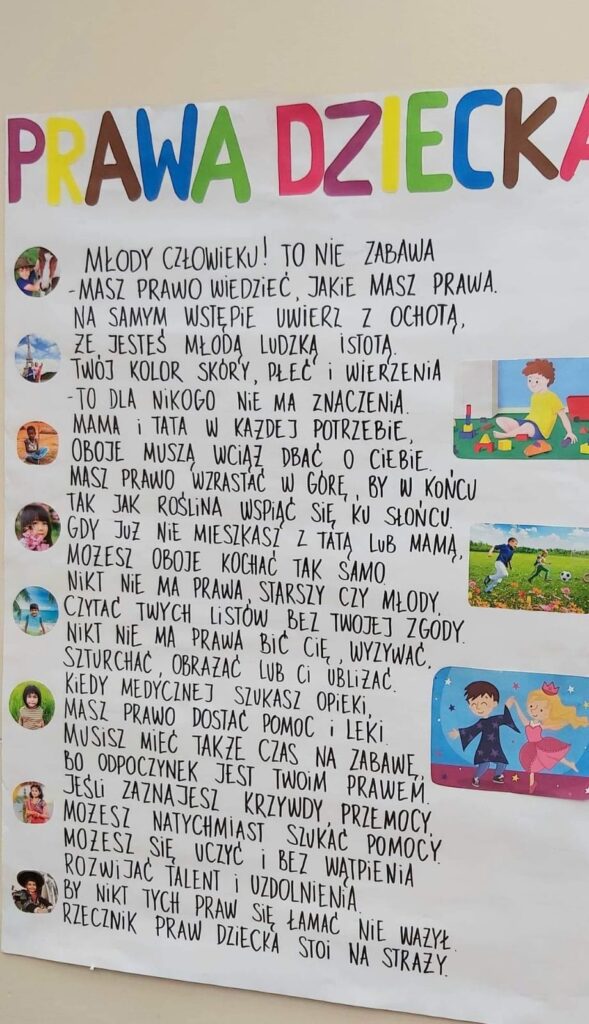 PRAWA DZIECKA
MŁODY CZŁOWIEKU! TO NIE ZABAWA
-MASZ PRAWO WIEDZIEĆ, JAKIE MASZ PRAWA.
NA SAMYM WSTĘPIE UWIERZ Z OCHOTĄ,
ŻE JESTEŚ MŁODĄ LUDZKĄ ISTOTĄ.
TWÓJ KOLOR SKÓRY, PŁEĆ i WIERZENIA
-TO DLA NIKOGO NIE MA ZNACZENIA.
MAMA i TATA W KAŻDEJ POTRZEBIE,
OBOJE MUSZĄ WCIĄŻ DBAĆ O CIEBIE.
MASZ PRAWO WZRASTAĆ W GÓRĘ, BY W KOŃCU
TAK JAK ROŚLINA WSPIĄĆ SIĘ KU SŁOŃCU.
GDY JUŻ NIE MIESZKASZ Z TATĄ LUB MAMĄ,
MOŻESZ OBOJE KOCHAĆ TAK SAMO.
NIKT NIE MA PRAWA, STARSZY CZY MŁODY,
CZYTAĆ TWYCH LISTÓW BEZ TWOJEJ ZGODY.
NIKT NIE MA PRAWA BIĆ CIĘ, WYZYWAĆ,
SZTURCHAĆ, OBRAŻAĆ LUB CI UBLIŻAĆ.
KIEDY MEDYCZNEJ SZUKASZ OPIEKI,
MASZ PRAWO DOSTAĆ POMOC i LEKI.
MUSISZ MIEĆ TAKŻE CZAS NA ZABAWĘ,
BO ODPOCZYNEK JEST TWOIM PRAWEM.
JEŚLI ZAZNAJESZ KRZYWDY, PRZEMOCY,
MOŻESZ NATYCHMIAST SZUKAĆ POMOCY.
MOŻESZ SIĘ UCZYĆ i BEZ WĄTPIENIA
ROZWIJAĆ TALENT i UZDOLNIENIA.
BY NIKT TYCH PRAW SIĘ ŁAMAĆ NIE WAŻYŁ.
RZECZNIK PRAW DZIECKA STOI NA STRAŻY.